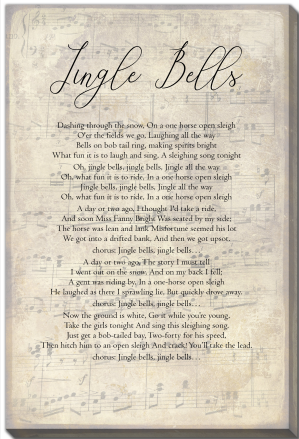 Jingle Bells
Dashing through the snow, On a one horse open sleigh
O'er the fields we go, Laughing all the way
Bells on bob tail ring, making spirits bright
What fun it is to laugh and sing, A sleighing song tonight
Oh, jingle bells, jingle bells, Jingle all the way
Oh, what fun it is to ride, In a one horse open sleigh
Jingle bells, jingle bells, Jingle all the way
Oh, what fun it is to ride, In a one horse open sleigh
A day or two ago, I thought I'd take a ride,
And soon Miss Fanny Bright Was seated by my side;
The horse was lean and lank Misfortune seemed his lot
We got into a drifted bank, And then we got upsot.
chorus: Jingle bells, jingle bells...
A day or two ago, The story I must tell
I went out on the snow, And on my back I fell;
A gent was riding by, In a one-horse open sleigh
He laughed as there I sprawling lie, But quickly drove away.
chorus: Jingle bells, jingle bells...
Now the ground is white, Go it while you're young,
Take the girls tonight And sing this sleighing song.
Just get a bob-tailed bay, Two-forty for his speed,
Then hitch him to an open sleigh And crack! You'll take the lead.
chorus: Jingle bells, jingle bells...